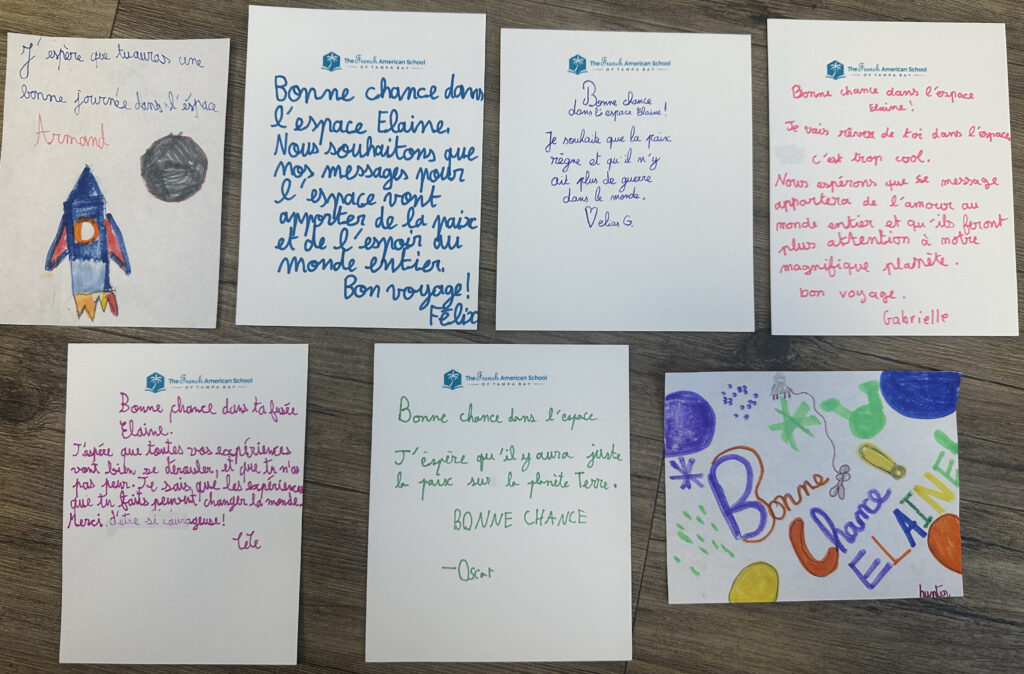 J'espère que tu auras une
bonne journée dans l'éspace
Armand
The French American School
OF TAMPA BAY
Bonne chance dans
l'espace Elaine.
Nous souhaitons que
nos messages pour
l'espace vont
apporter de la paix
et de l'espoir du
monde entier.
Bon voyage!
Félix
The French American School
OF TAMPA BAY
Bonne chance
dans l'espace Elaine!
Je souhaite que la paix
règne et qu'il n'y
ait plus de guerre
dans le monde.
elias G.
The French American School
OF TAMPA BAY
Bonne chance dans l'espace
Elaine!
Je vais rêver de toi dans l'espace
c'est trop cool.
Nous espérons que se message
apportera de l'amour au
monde entier et qu'ils feront
plus attention à notre
magnifique planète.
bon voyage.
Gabrielle
The French American School
OF TAMPA BAY
Bonne chance dans ta fusée
Elaine.
J'éspère que toutes vos expériences
vont bien se dérouler, et que tu n'as
pas peur. Je sais que les expériences
que tu faits peuvent changer la monde.
Merci d'être si courageuse!
The French American School
OF TAMPA BAY
Bonne chance dans l'espace
J'éspère qu'il y aura juste
la paix sur la planète Terre.
BONNE CHANCE
—Oscar
Bonne
Chance
ELAINE!
hunter